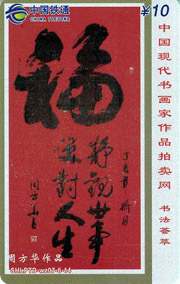 中国铁通
CHINA TIETONG
¥10
福
静观世事
笑对人生
丁亥年
周方华
中国现代书画家作品拍卖网
书法荟萃
周方华作品